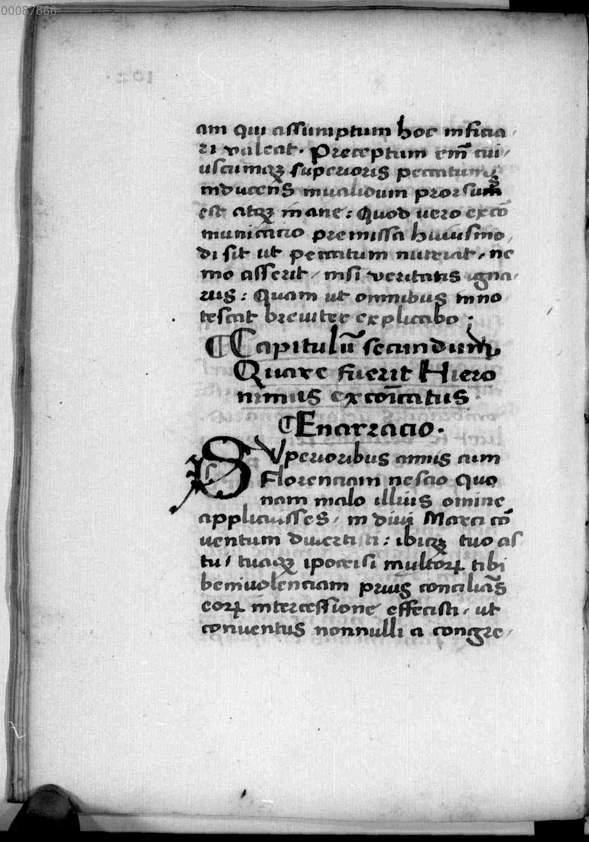 00087866
am qui assumptum hoc inficia,
ri valeat. Preceptum em̃ cui,
uscumqꝫ superioris peccatum
inducens inualidum prorsum
est atqꝫ inane: Quod vero exco͂
municatio premissa huiusmo,
di sit ut peccatum nutriat, ne
mo asserit, nisi veritatis igna,
rus: Quam ut omnibus inno
tescat breuiter explicabo;
¶Capitulũ secundum,
Quare fuerit Hiero
nimus excoĩcatus
¶Enarracio.
Superioribus annis cum
Florenciam nescio quo
nam malo illius omine
applicuisses, in diui Marci co͂
ventum diuertisti: ibiqꝫ tuo as
tu, tuaqꝫ ipocrisi multoꝝ tibi
beniuolenciam prius concilia͂s
eoꝝ intercessione effecisti, ut
conuentus nonnulli a congre,